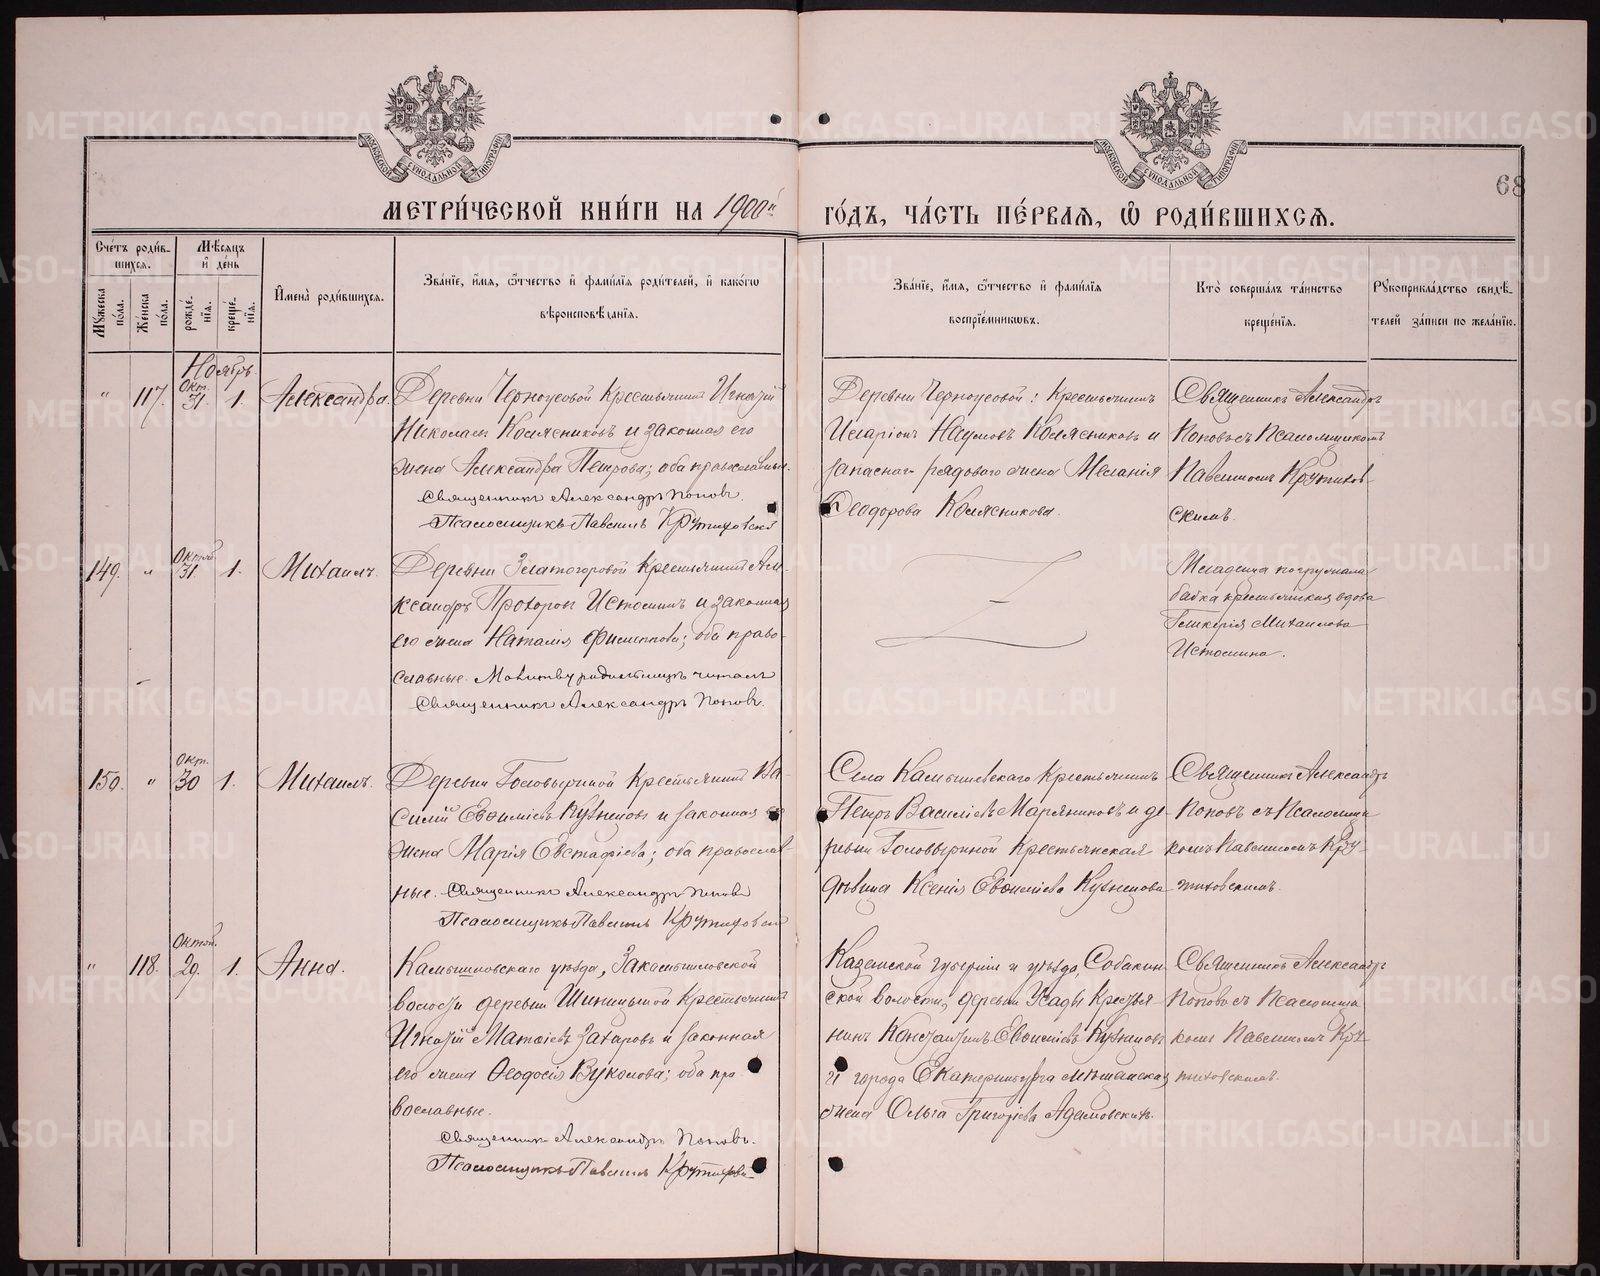 68
МЕТРИ́ЧЕСКОЙ КНИ́ГИ НА 1900й ГО́ДЪ, ЧА́СТЬ ПЕ́РВАѦ, Ѿ РОДИ́ВШИХСѦ.
МОСКОВСКОЙ СѴНОДАЛЬНОЙ ТИПОГРАФІИ
МОСКОВСКОЙ СѴНОДАЛЬНОЙ ТИПОГРАФІИ
Сче́тъ роди́в-
шихсѧ.
Мѣ́сѧцъ
и҆ де́нь
Мꙋ́жеска по́ла.
Же́нска по́ла.
рожде́-
нїѧ.
креще́-
нїѧ.
И҆мена̀ роди́вшихсѧ.
Зва́нїе, и҆́мѧ, ѻ҆́тчество и҆ фами́лїѧ роди́телей, и҆ какѡ́гѡ
вѣроисповѣ́данїѧ.
Зва́нїе, и҆́мѧ, ѻ҆́тчество и҆ фами́лїѧ
воспрїе́мникѡвъ.
Кто̀ соверша́лъ та́инство
креще́нїѧ.
Рꙋкоприкла́дство свидѣ́-
телей за́писи по жела́нїю.
Ноябрь.
" 117. Окт. 31. 1. Александра.
Деревни Черноусовой Крестьянинъ Игнатій
Николаевъ Колясниковъ и законная его
жена Александра Петрова; оба православные.
Священникъ Александръ Поповъ.
Псаломщикъ Павелинъ Крутиховскій
Деревни Черноусовой: Крестьянинъ
Иларіонъ Наумовъ Колясниковъ и
запаснаго рядового жена Меланія
Ѳеодорова Колясникова.
Священникъ Александръ
Поповъ съ Псаломщикомъ
Павелиномъ Крутихов-
скимъ.
149. " Октяб. 31 1. Михаилъ.
Деревни Златогоровой Крестьянинъ Але-
ксандръ Прохоровъ Истоминъ и законная
его жена Наталія Филиппова; оба право-
славные. Молитву родильницѣ читалъ
Священникъ Александръ Поповъ.
Младенца погружала
бабка крестьянская вдова
Гликерія Михаилова
Истомина.
150. " Окт. 30 1. Михаилъ.
Деревни Головыриной Крестьянинъ Ва-
силій Евѳиміевъ Кузнецовъ и законная его
жена Марія Евстафіева; оба православ-
ные. Священникъ Александръ Поповъ
Псаломщикъ Павелинъ Крутиховскій
Села Камышевскаго Крестьянинъ
Петръ Василіевъ Марьяниковъ и де-
ревни Головыриной Крестьянская
дѣвица Ксенія Евѳиміева Кузнецова
Священникъ Александръ
Поповъ съ Псаломщи
комъ Павелиномъ Кру-
тиховскимъ.
" 118. Октяб. 29. 1. Анна.
Камышловскаго уѣзда, Закамышловской
волости деревни Шипицыной Крестьянинъ
Игнатій Матѳіевъ Захаровъ и законная
его жена Ѳеодосія Вуколова; оба пра
вославные.
Священникъ Александръ Поповъ.
Псаломщикъ Павелинъ Крутиховскій
Казанской губерніи и уѣзда, Собакин
ской волости, деревни Усады Крестья
нинъ Константинъ Евѳиміевъ Кузнецовъ
и города Екатеринбурга мѣщанская
жена Ольга Григоріева Адамовскихъ.
Священникъ Александръ
Поповъ съ Псаломщи
комъ Павелиномъ Кру
тиховскимъ.
METRIKI.GASO-URAL.RU